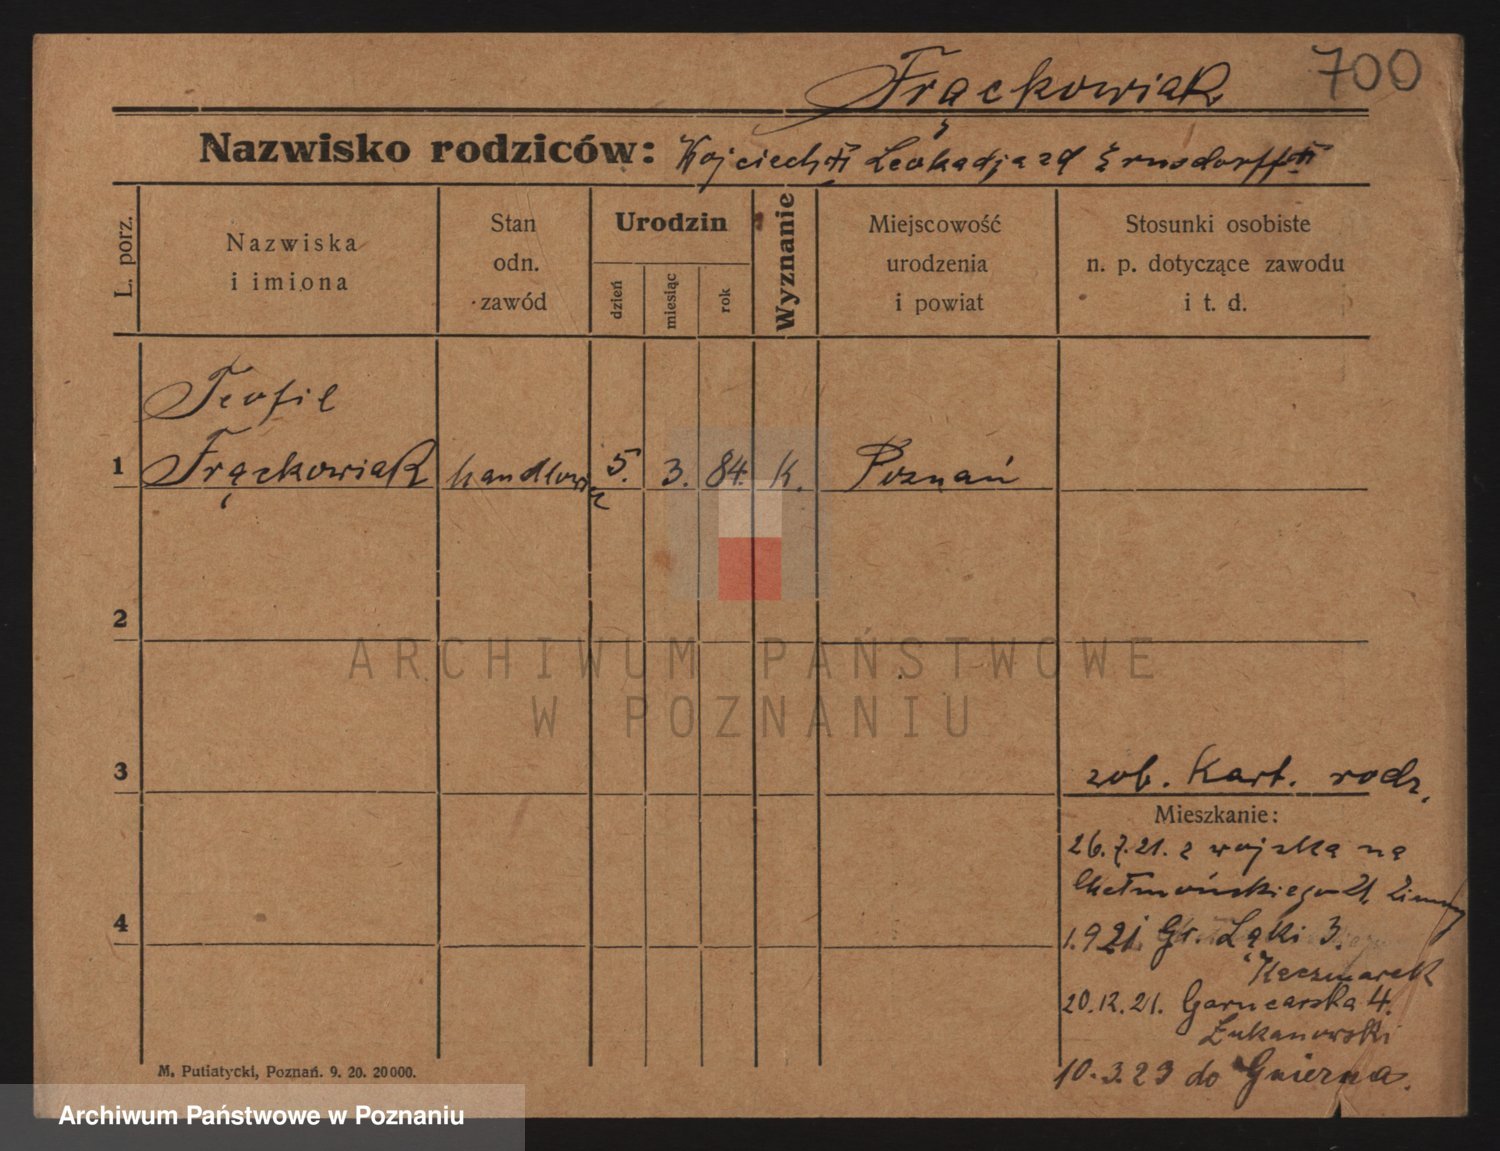 Frąckowiak 700
Nazwisko rodziców: Wojciech Leokadja zd Ernsdorff
L. porz.
Nazwiska
i imiona
Stan
odn.
zawód
Urodzin
dzień
miesiąc
rok
Wyznanie
Miejscowość
urodzenia
i powiat
Stosunki osobiste
n. p. dotyczące zawodu
i t. d.
Teofil
1 Frąckowiak handlowiec 5. 3. 84. K. Poznań
2
ARCHIWUM PAŃSTWOWE
W POZNANIU
3 zob. Kart. rodz.
Mieszkanie:
26.7.21. z wojska na
Chełmońskiego 21,
4
1.9 21. Gr. Łąki 3.
Kaczmarek
20.12.21. Garncarska 4.
Łukanowski
10.3.23 do Gniezna.
M. Putiatycki, Poznań. 9. 20. 20000.
Archiwum Państwowe w Poznaniu